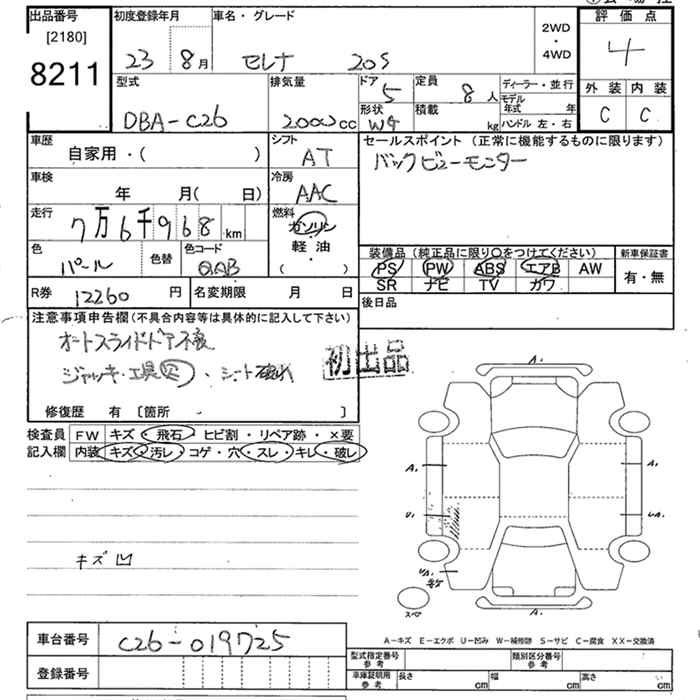 出品番号
[2180]
8211
初度登録年月
23 8月
車名・グレード
セレナ 20S
2WD
・
4WD
評価点
4
外装 内装
C C
型式
DBA-C26
排気量
2000cc
ドア
5
形状
定員
8人
積載
kg
ディーラー・並行
モデル年式 年
ハンドル 左・右
車歴
自家用・( )
シフト
AT
車検
年 月( 日)
冷房
AAC
走行
7万6千968km
燃料
ガソリン
軽油
( )
色
パール
色替
色コード
QAB
R券 12260円
名変期限 月 日
セールスポイント(正常に機能するものに限ります)
バックビューモニター
装備品(純正品に限り〇をつけてください)
PS PW ABS エアB AW
SR ナビ TV カワ
新車保証書
有・無
後日品
注意事項申告欄(不具合内容等は具体的に記入して下さい)
オートスライドドア不良
ジャッキ・工具欠・シート破れ
初出品
修復歴 有 [箇所 ]
検査員
記入欄
FW キズ・飛石・ヒビ割・リペア跡・×要
内装 キズ・汚レ・コゲ・穴・スレ・キレ・破レ
キズ凹
A.
A.
A.
U.
UA.
スペ
A.
A－キズ E－エクボ U－凹み W－補修跡 S－サビ C－腐食 XX－交換済
車台番号 C26-019725
登録番号
型式指定番号
参考
類別区分番号
参考
車庫証明用
参考
長さ cm 幅 cm 高さ cm